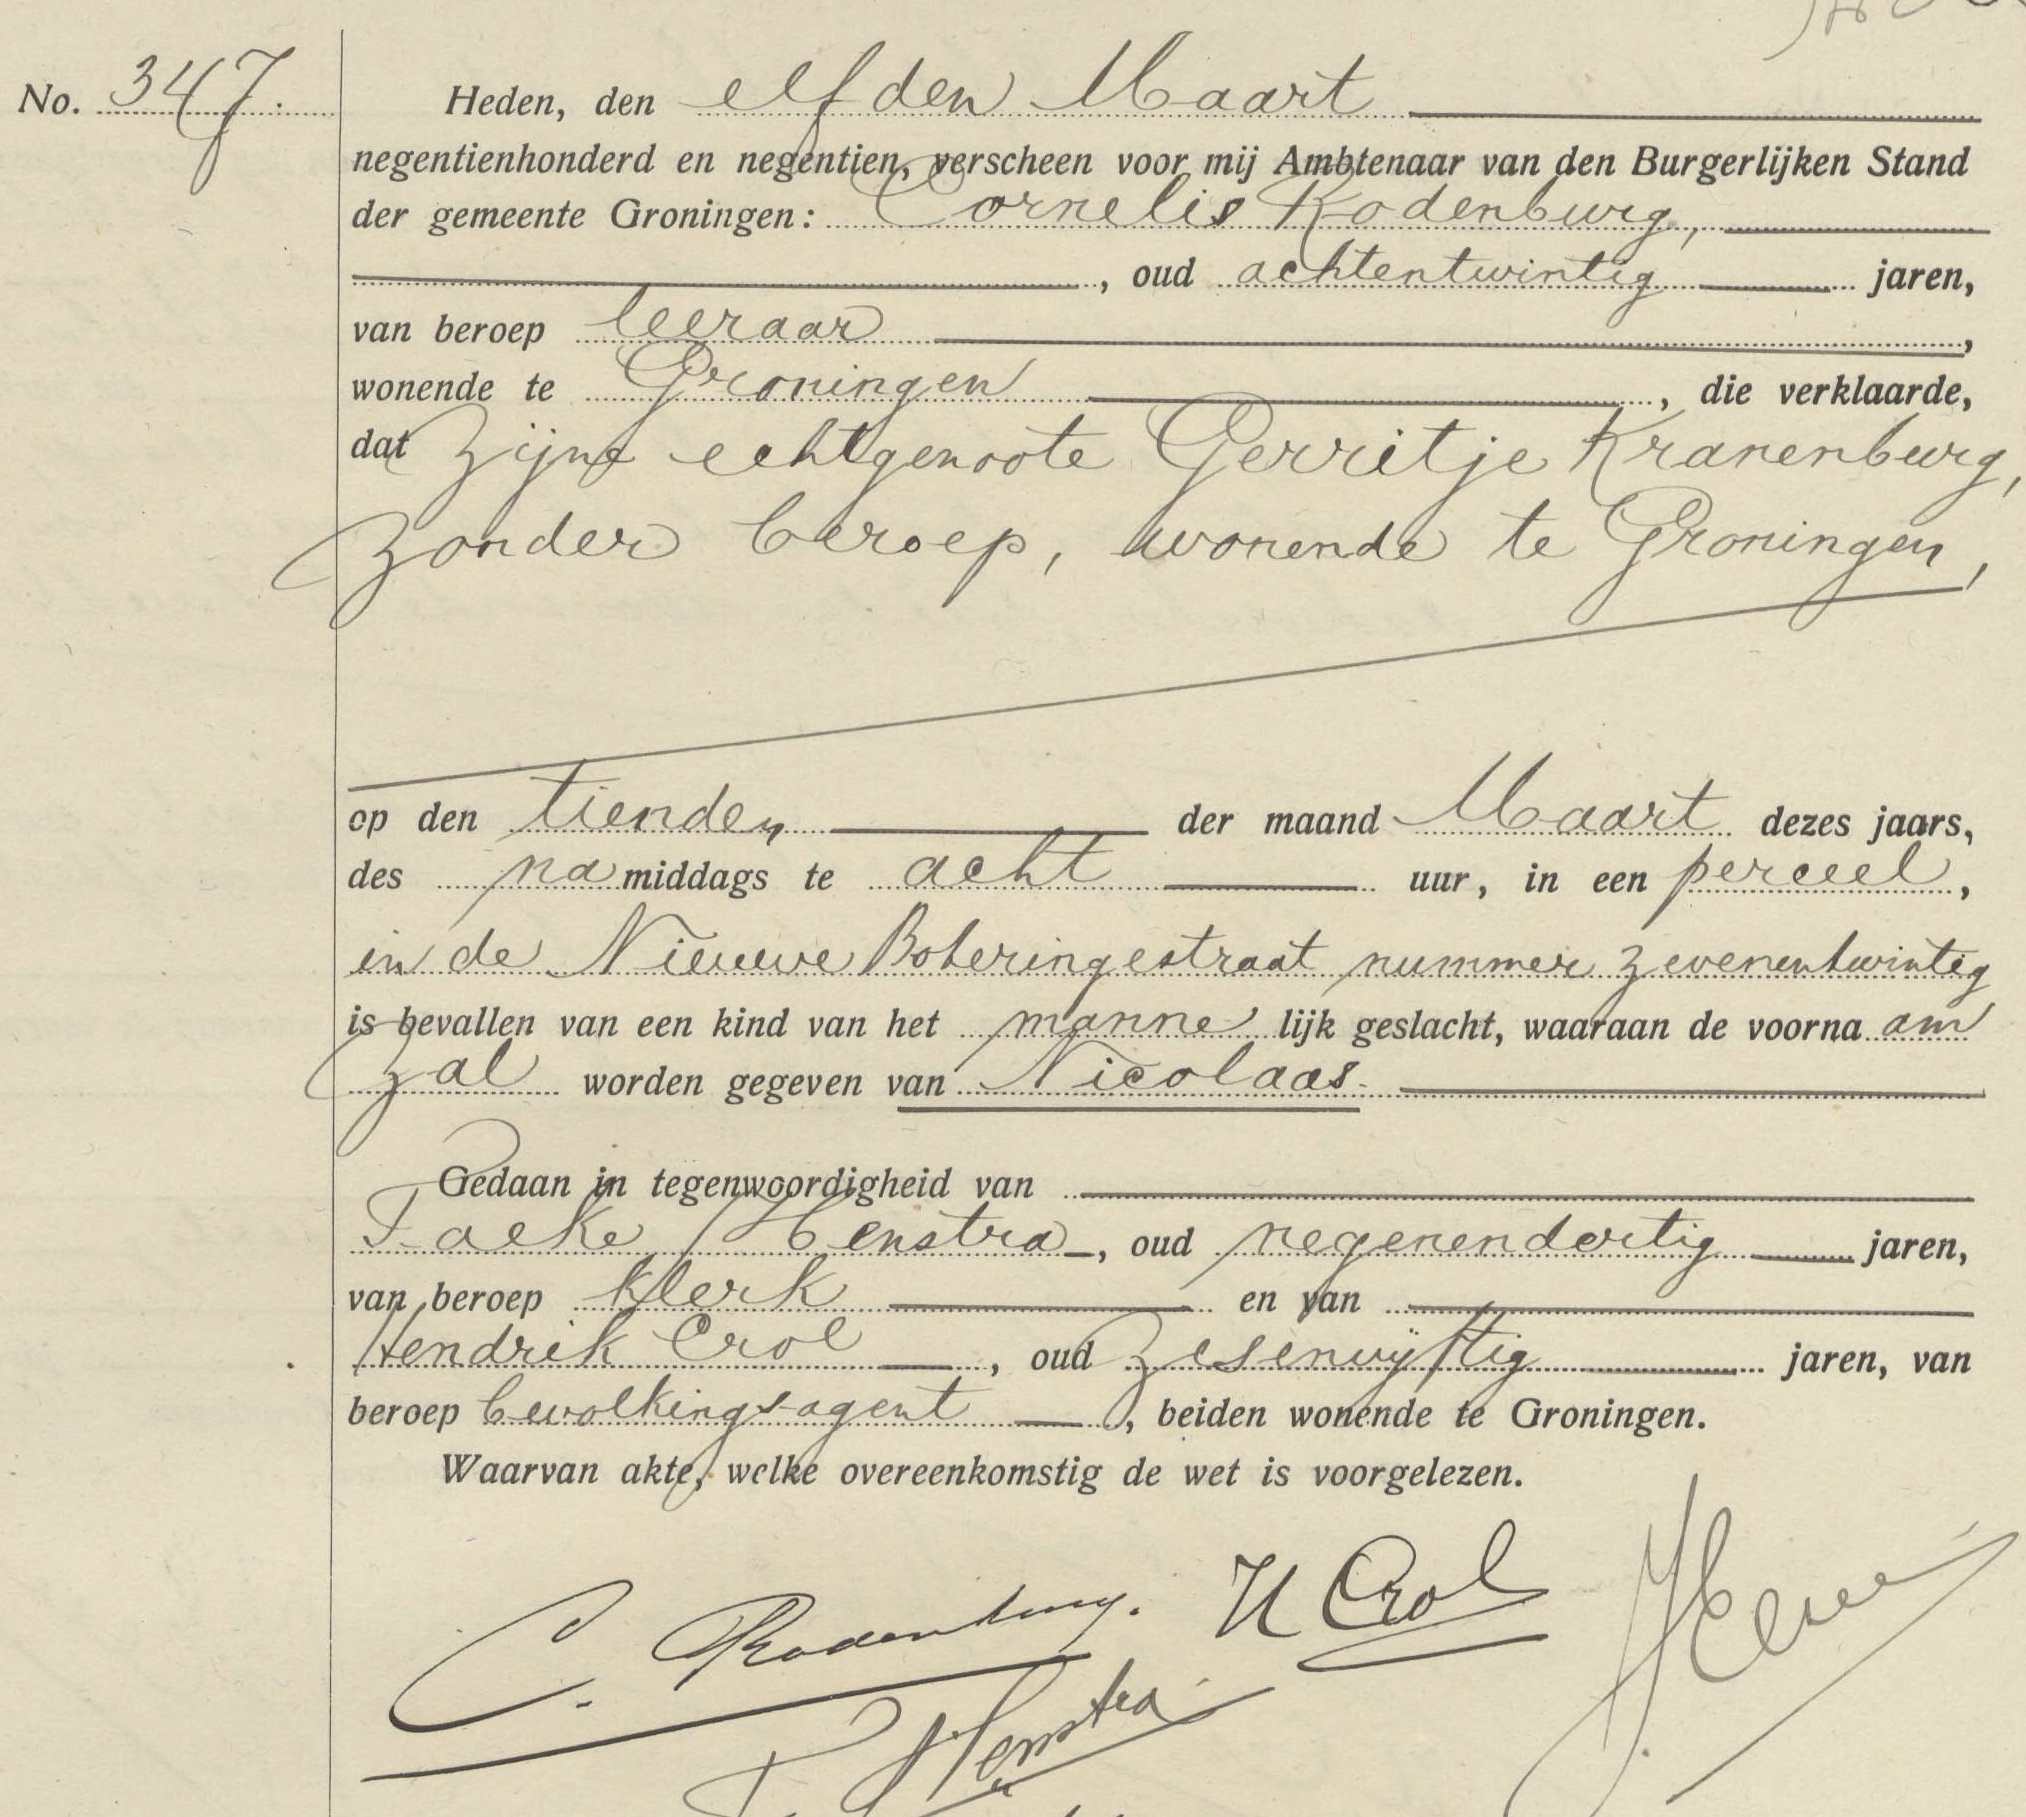 No. 347.
Heden, den elfden Maart
negentienhonderd en negentien, verscheen voor mij Ambtenaar van den Burgerlijken Stand
der gemeente Groningen: Cornelis Rodenburg,
, oud achtentwintig jaren,
van beroep leeraar ,
wonende te Groningen , die verklaarde,
dat zijne echtgenoote Gerritje Kranenburg,
zonder beroep, wonende te Groningen,
op den tienden der maand Maart dezes jaars,
des namiddags te acht uur, in een perceel,
in de Nieuwe Boteringestraat nummer zevenentwintig
is bevallen van een kind van het mannelijk geslacht, waaraan de voornaam
zal worden gegeven van Nicolaas.
Gedaan in tegenwoordigheid van
Focke Henstra, oud negenendertig jaren,
van beroep klerk en van
Hendrik Crol , oud zesenvijftig jaren, van
beroep bevolkingsagent , beiden wonende te Groningen.
Waarvan akte, welke overeenkomstig de wet is voorgelezen.
C. Rodenburg. H Crol
Henstra